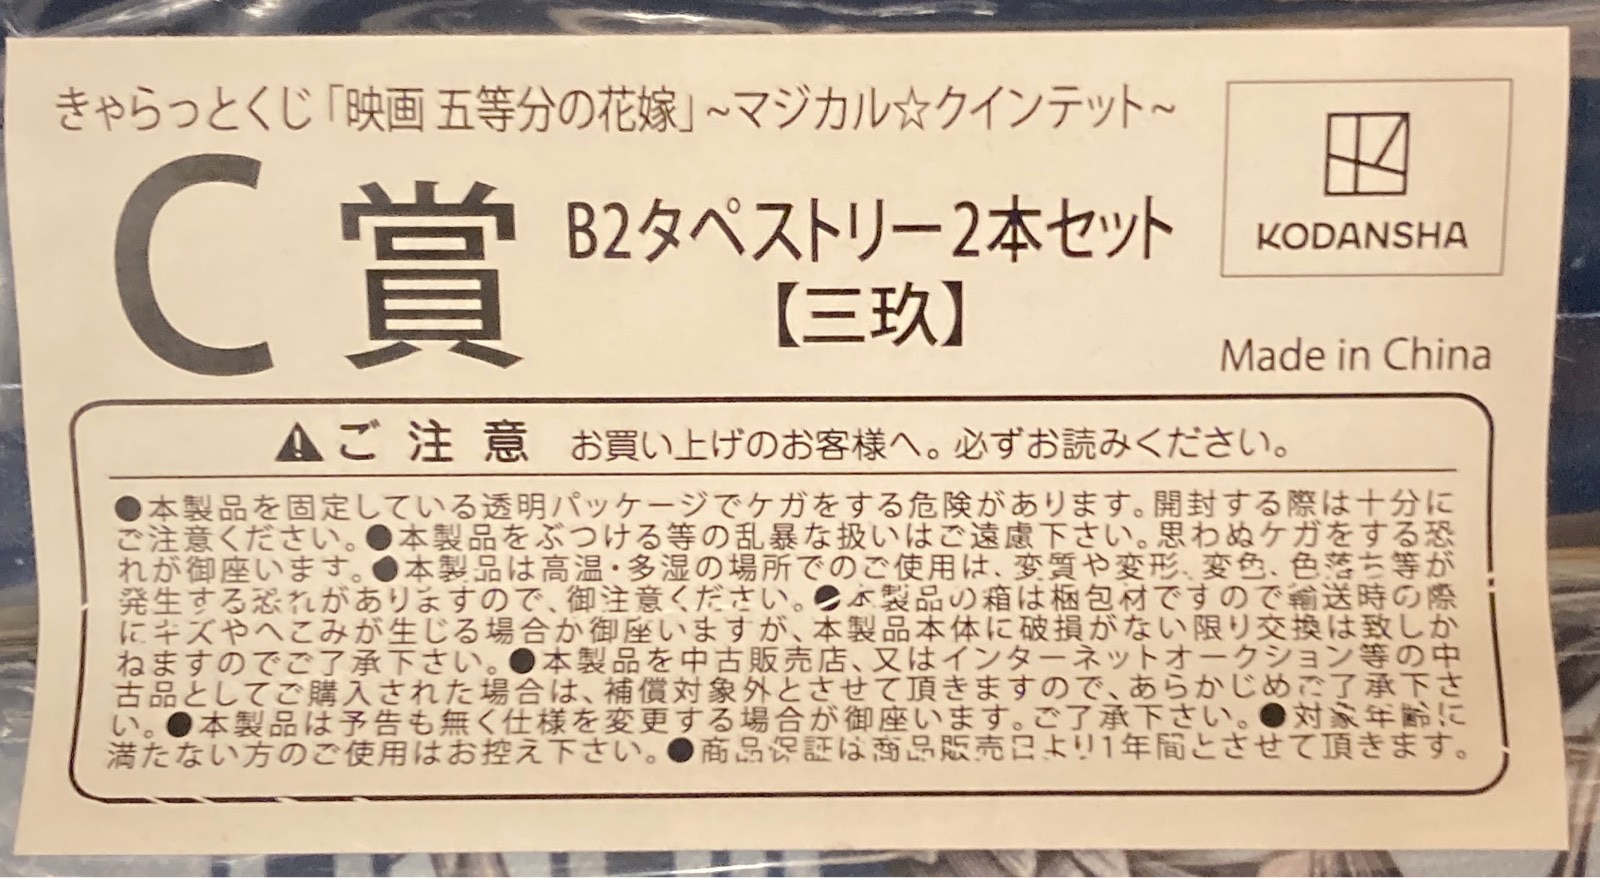 きゃらっとくじ「映画 五等分の花嫁」~マジカル☆クインテット~
C賞
B2タペストリー2本セット
【三玖】
KODANSHA
Made in China
ご注意 お買い上げのお客様へ。必ずお読みください。
●本製品を固定している透明パッケージでケガをする危険があります。開封する際は十分に
ご注意ください。●本製品をぶつける等の乱暴な扱いはご遠慮下さい。思わぬケガをする恐
れが御座います。●本製品は高温・多湿の場所でのご使用は、変質や変形、変色、色落ち等が
発生する恐れがありますので、御注意ください。●本製品の箱は梱包材ですので輸送時の際
にキズやへこみが生じる場合が御座いますが、本製品本体に破損がない限り交換は致しか
ねますのでご了承下さい。●本製品を中古販売店、又はインターネットオークション等の中
古品としてご購入された場合は、補償対象外とさせて頂きますので、あらかじめご了承下さ
い。●本製品は予告も無く仕様を変更する場合が御座います。ご了承下さい。●対象年齢に
満たない方のご使用はお控え下さい。●商品保証は商品販売日より1年間とさせて頂きます。